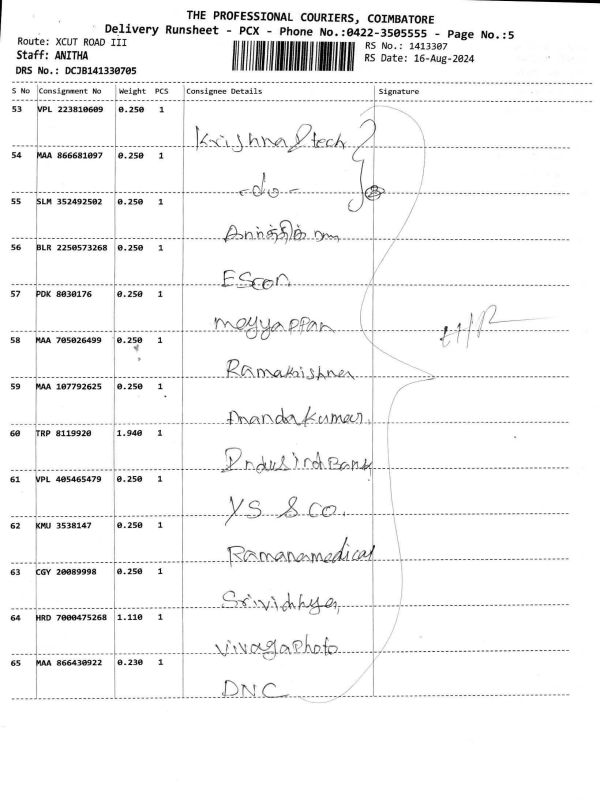 THE PROFESSIONAL COURIERS, COIMBATORE
Delivery Runsheet - PCX - Phone No.:0422-3505555 - Page No.:5
Route: XCUT ROAD III
RS No.: 1413307
Staff: ANITHA
RS Date: 16-Aug-2024
DRS No.: DCJB141330705
S No Consignment No Weight PCS Consignee Details Signature
53 VPL 223810609 0.250 1
Krishna & tech
54 MAA 866681097 0.250 1
-do-
55 SLM 352492502 0.250 1
56 BLR 2250573268 0.250 1
EScon
57 PDK 8030176 0.250 1
meyyappan
58 MAA 705026499 0.250 1
Ramakrishnan
59 MAA 107792625 0.250 1
Anandakumar
60 TRP 8119920 1.940 1
IndusindBank
61 VPL 405465479 0.250 1
YS & CO.
62 KMU 3538147 0.250 1
Ramanamedical
63 CGY 20089998 0.250 1
Srividhya
64 HRD 7000475268 1.110 1
vivagaphoto
65 MAA 866430922 0.230 1
DNC